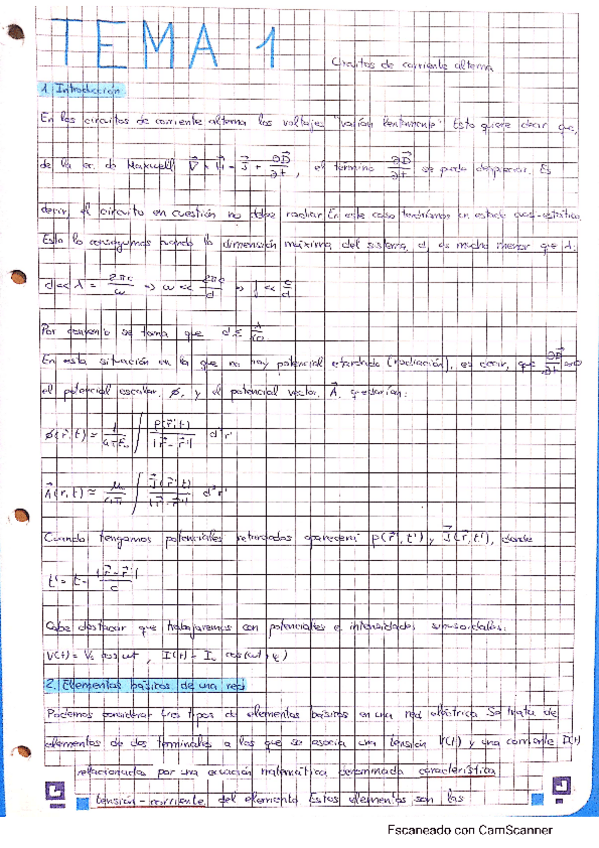 TEMA 1
Circuitos de corriente alterna
1. Introducción
En los circuitos de corriente alterna los voltajes "varían lentamente". Esto quiere decir que,
de la ec. de Maxwell ∇⃗ × H⃗ = J⃗ + ∂D⃗/∂t, el término ∂D⃗/∂t se puede despreciar. Es
decir, el circuito en cuestión no debe radiar. En este caso tendríamos un estado cuasi-estático.
Esto lo conseguimos cuando la dimensión máxima del sistema, d, es mucho menor que λ.
d << λ = 2πc/ω => ω << 2πc/d => f << c/d
Por convenio se toma que d ≤ λ/10
En esta situación en la que no hay potencial retardado (radiación), es decir, que ∂D⃗/∂t ≈ 0
el potencial escalar, ø, y el potencial vector, A⃗, quedarían:
ø(r⃗,t) ≈ 1/4πε₀ ∫ ρ(r⃗',t)/|r⃗-r⃗'| d³r'
A⃗(r,t) ≈ μ₀/4π ∫ J⃗(r⃗',t)/|r⃗-r⃗'| d³r'
Cuando tengamos potenciales retardados aparecerá ρ(r⃗',t') y J⃗(r⃗',t'), donde
t' = t - |r⃗-r⃗'|/c
Cabe destacar que trabajaremos con potenciales e intensidades sinusoidales:
V(t) = V₀ cos ωt, I(t) = I₀ cos(ωt + φ)
2. Elementos básicos de una red
Podemos considerar tres tipos de elementos básicos en una red eléctrica. Se trata de
elementos de dos terminales a los que se asocia una tensión V(t) y una corriente I(t)
relacionadas por una ecuación matemática denominada característica
tensión-corriente del elemento. Estos elementos son las
Escaneado con CamScanner